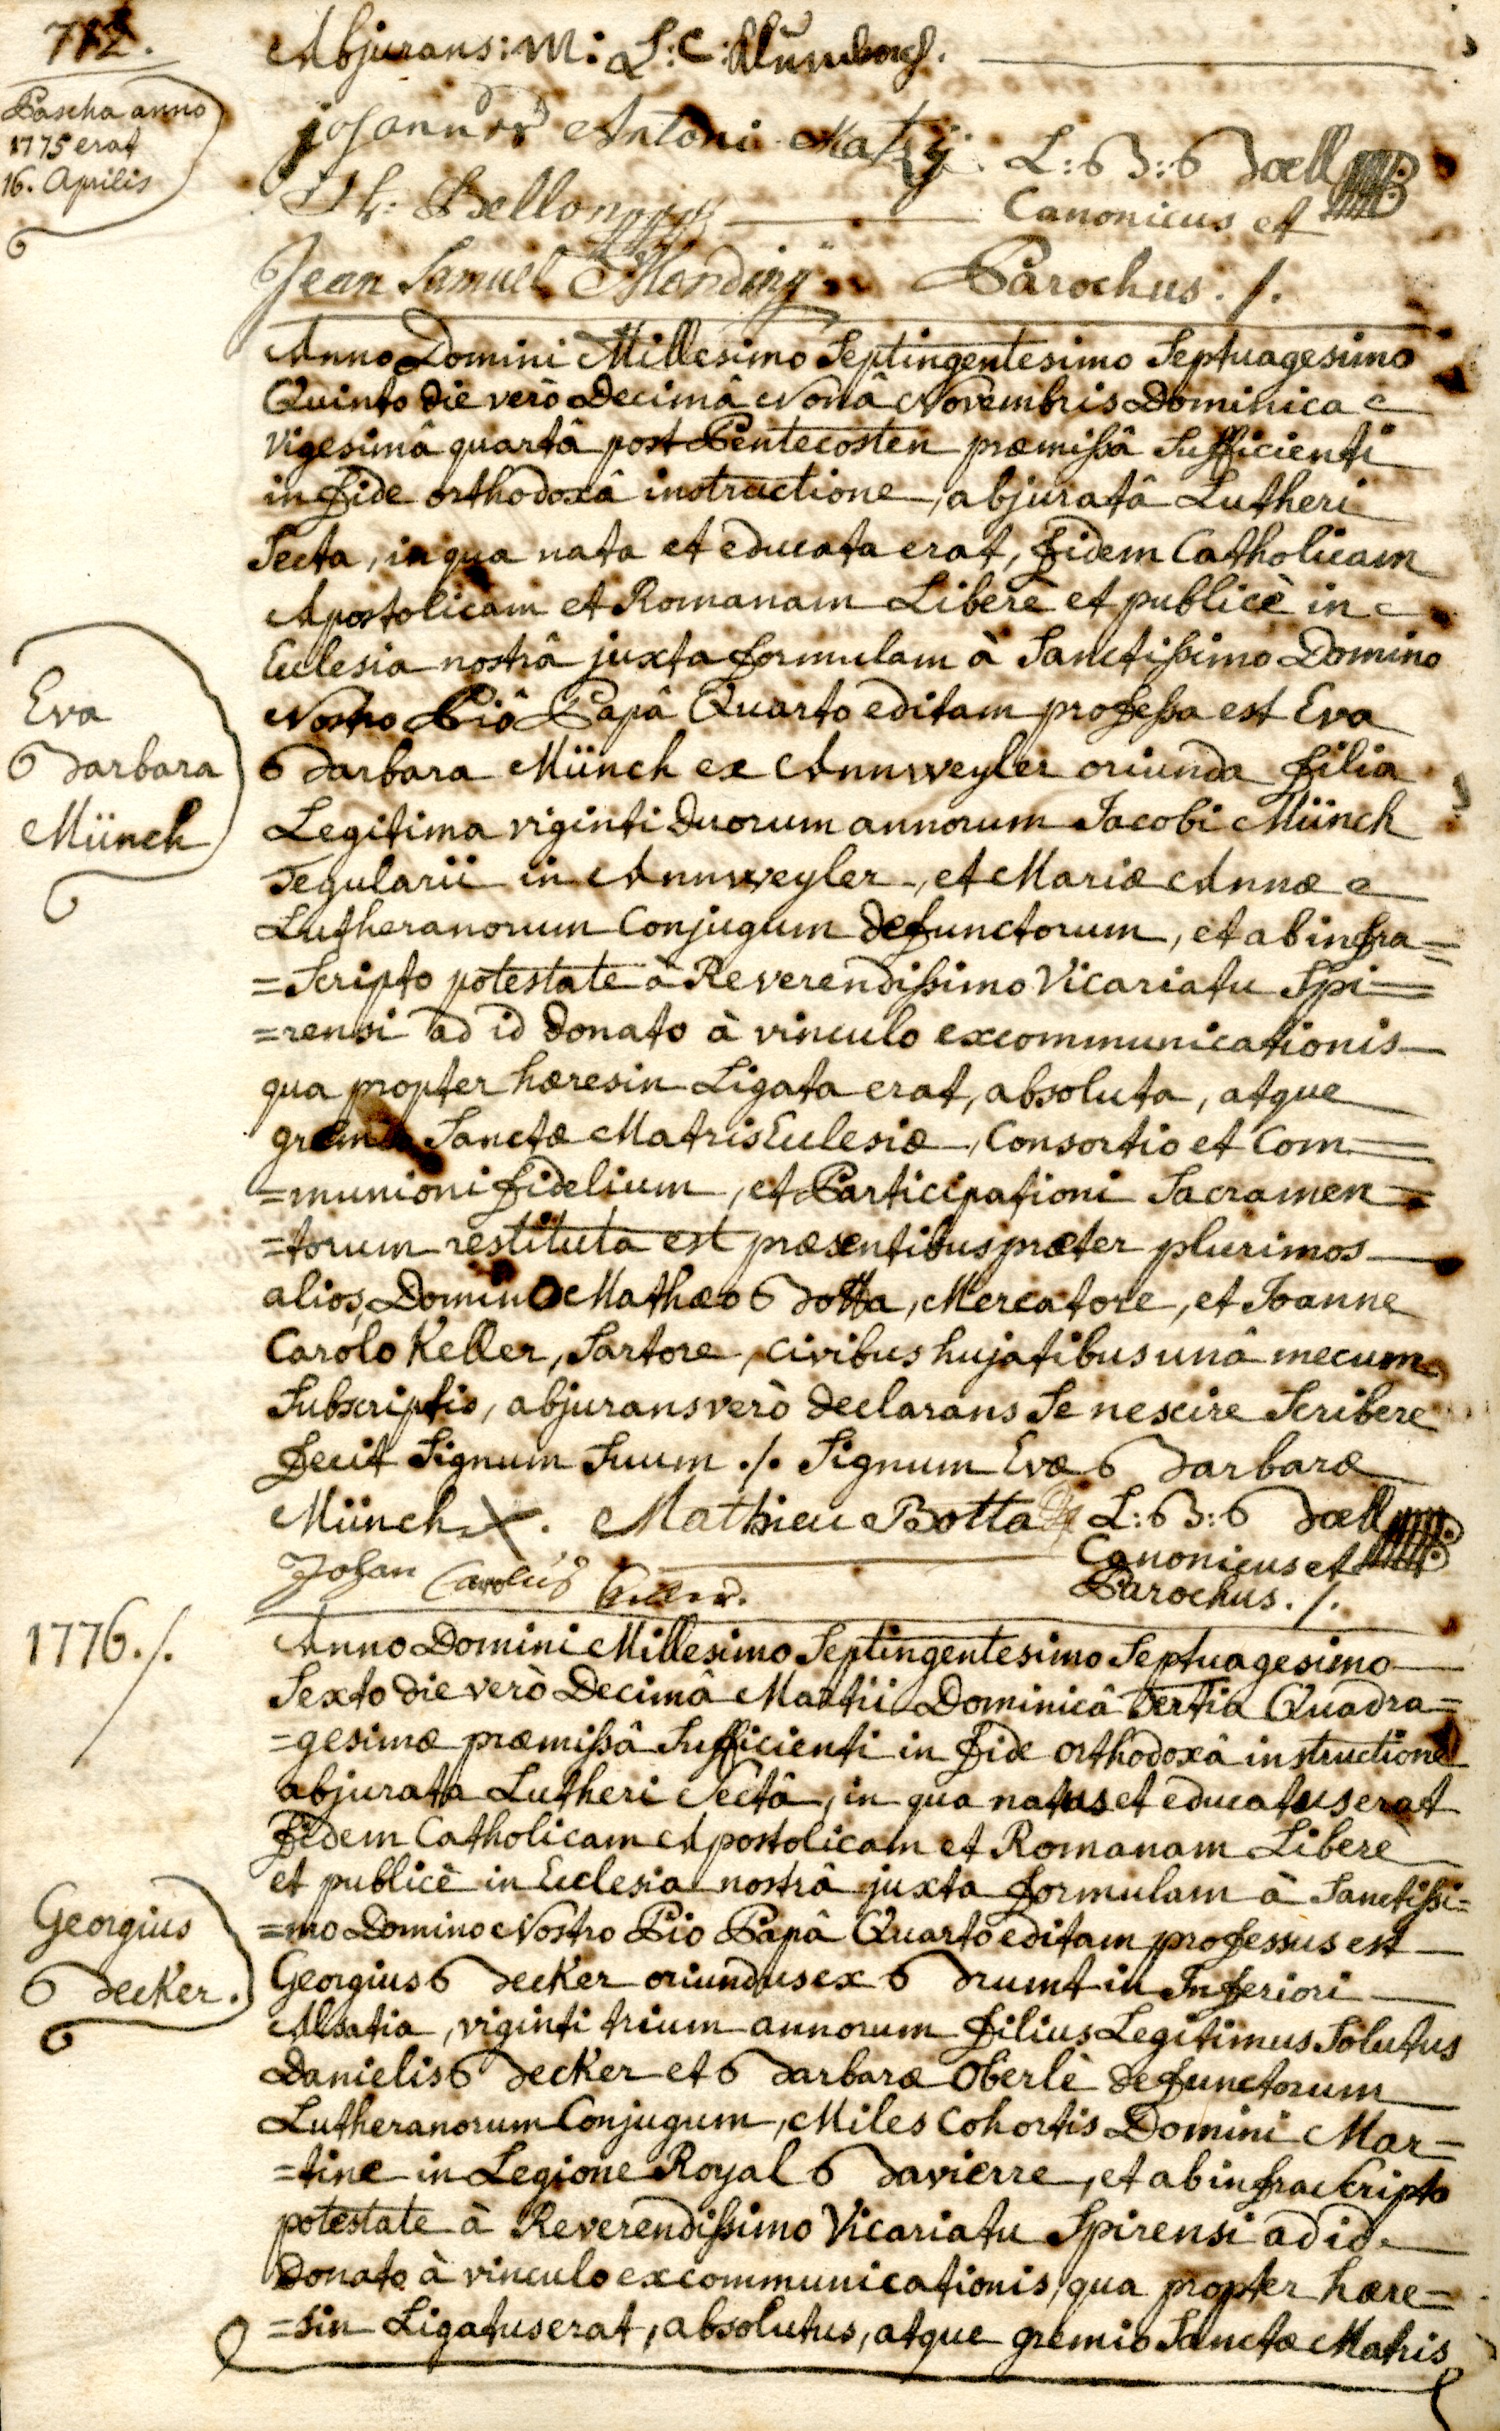 712.
Pascha anno
1775 erat
16. Aprilis
Abjurans: M: L: C:
Johannes Antoni Matÿ. L: B: Boell
Canonicus et
Jean Samuel Parochus. /.
Anno Domini Millesimo Septingentesimo Septuagesimo
Quinto die verò Decimâ Nonâ Novembris Dominica
vigesimâ quartâ post Pentecosten præmissâ Sufficienti
in fide orthodoxâ instructione, abjuratâ Lutheri
Secta, in qua nata et educata erat, fidem Catholicam
Apostolicam et Romanam Liberè et publicè in
Ecclesia nostrâ juxta formulam à Sanctissimo Domino
Nostro Piô Papâ Quarto editam professa est Eva
Barbara Münch ex Annweyler oriunda filia
Legitima viginti duorum annorum Jacobi Münch
Tegularii in Annweyler, et Mariæ Annæ
Lutheranorum Conjugum defunctorum, et ab infra=
=Scripto potestate à Reverendissimo Vicariatu Spi=
=rensi ad id donato à vinculo excommunicationis
qua propter hæresin Ligata erat, absoluta, atque
gremio Sanctæ Matris Ecclesiæ, Consortio et Com=
=munioni fidelium, et Participationi Sacramen=
=torum restituta est præsentibus præter plurimos
alios, Domino Mathæo Botta, Mercatore, et Joanne
Carolo Keller, Sartore, civibus hujatibus unâ mecum
Subscriptis, abjurans verò declarans Se nescire Scribere
fecit Signum Suum ./. Signum Evæ Barbaræ
Münch X. Mathieu Botta L: B: Boell
Canonicus et
Johan Carolus Keller. Parochus. /.
Eva
Barbara
Münch
1776./.
Anno Domini Millesimo Septingentesimo Septuagesimo
Sexto die verò Decimâ Martii Dominicâ Tertia Quadra=
=gesimæ præmissâ Sufficienti in fide orthodoxâ instructione
abjurata Lutheri Sectâ, in qua natus et educatus erat
fidem Catholicam Apostolicam et Romanam Liberè
et publicè in Ecclesia nostrâ juxta formulam à Sanctissi=
=mo Domino Nostro Pio Papâ Quarto editam professus est
Georgius Becker oriundus ex Brumt in Inferiori
Alsatia, viginti trium annorum filius Legitimus Solutus
Danielis Becker et Barbaræ Oberlè defunctorum
Lutheranorum Conjugum, Miles Cohortis Domini Mar=
=tine in Legione Royal Bavierre, et ab infra Scripto
potestate à Reverendissimo Vicariatu Spirensi ad id
donato à vinculo excommunicationis, qua propter hære=
=sin Ligatus erat, absolutus, atque gremio Sanctæ Matris
Georgius
Becker.